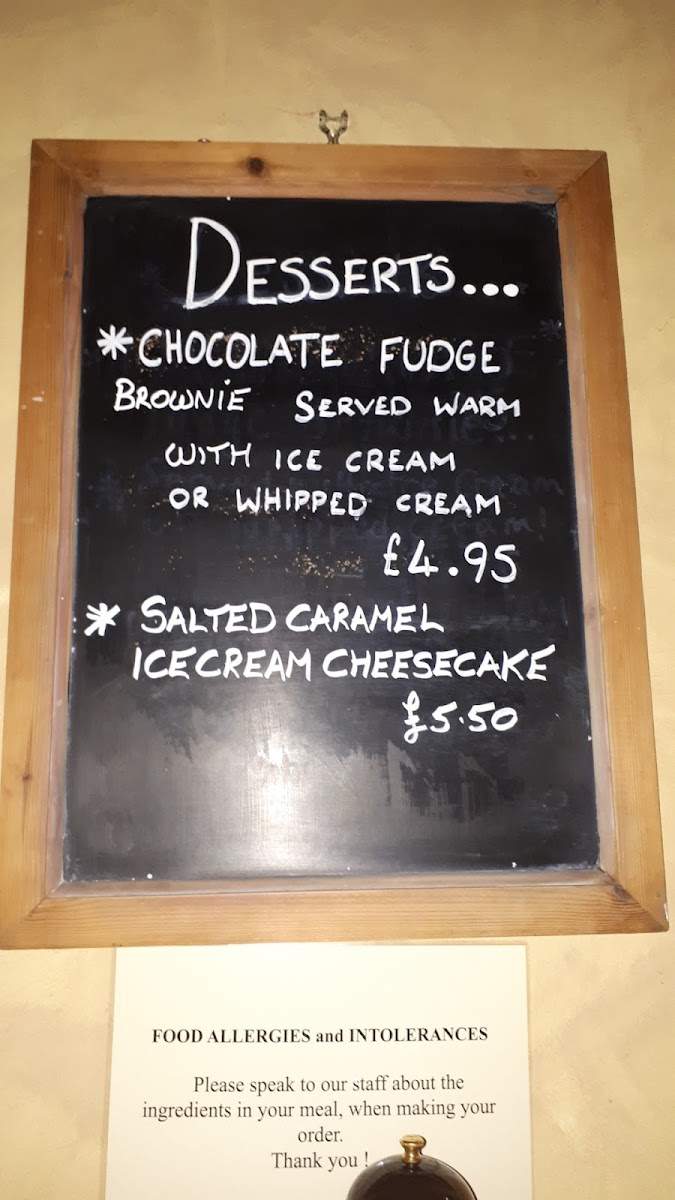 DESSERTS...
* CHOCOLATE FUDGE
BROWNIE SERVED WARM
WITH ICE CREAM
OR WHIPPED CREAM
£4.95
* SALTED CARAMEL
ICECREAM CHEESECAKE
£5.50
FOOD ALLERGIES and INTOLERANCES
Please speak to our staff about the
ingredients in your meal, when making your
order.
Thank you !